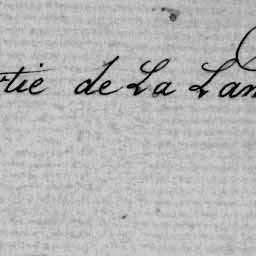 rtie de La Lan